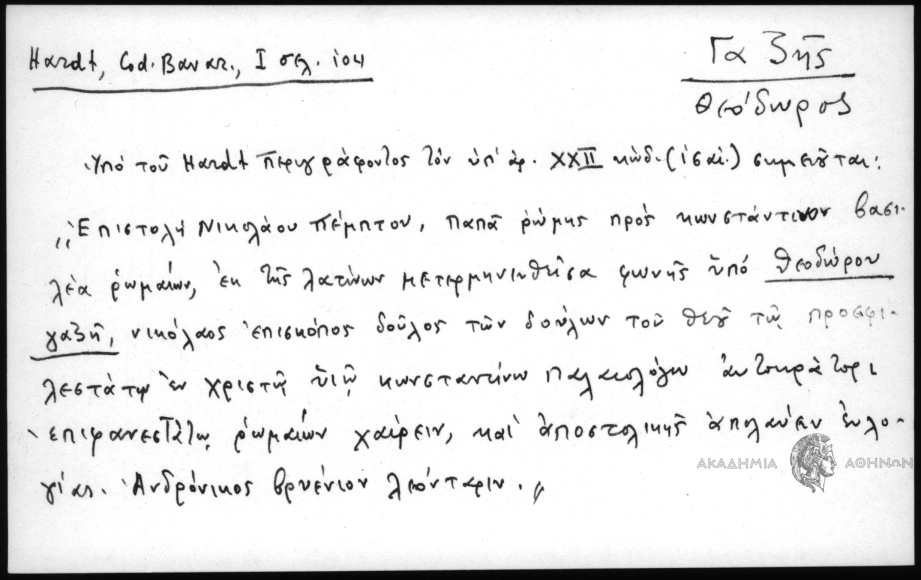 Hardt, Cod. Bavar., I σελ. 104
Γαζῆς
Θεόδωρος
Ὑπό τοῦ Hardt περιγράφοντος τόν ὑπ' ἀρ. XXII κώδ. σημειοῦται:
„Ἐπιστολή Νικολάου πέμπτου, πάπα ῥώμης πρός κωνστάντινον βασι-
λέα ῥωμαίων, ἐκ τῆς λατίνων μετερμηνευθεῖσα φωνῆς ὑπό θεοδώρου
γαζῆ, νικόλαος ἐπισκόπος δοῦλος τῶν δούλων τοῦ θεοῦ τῷ προσφι-
λεστάτῳ ἐν χριστῷ υἱῷ κωνσταντίνω παλαιολόγω αὐτοκράτορι
ἐπιφανεστάτω ῥωμαίων χαίρειν, καί ἀποστολικῆς ἀπολαύειν εὐλο-
γίας. Ἀνδρόνικος βρυένιον λεόνταριν.„
ΑΚΑΔΗΜΙΑ ΑΘΗΝΩΝ